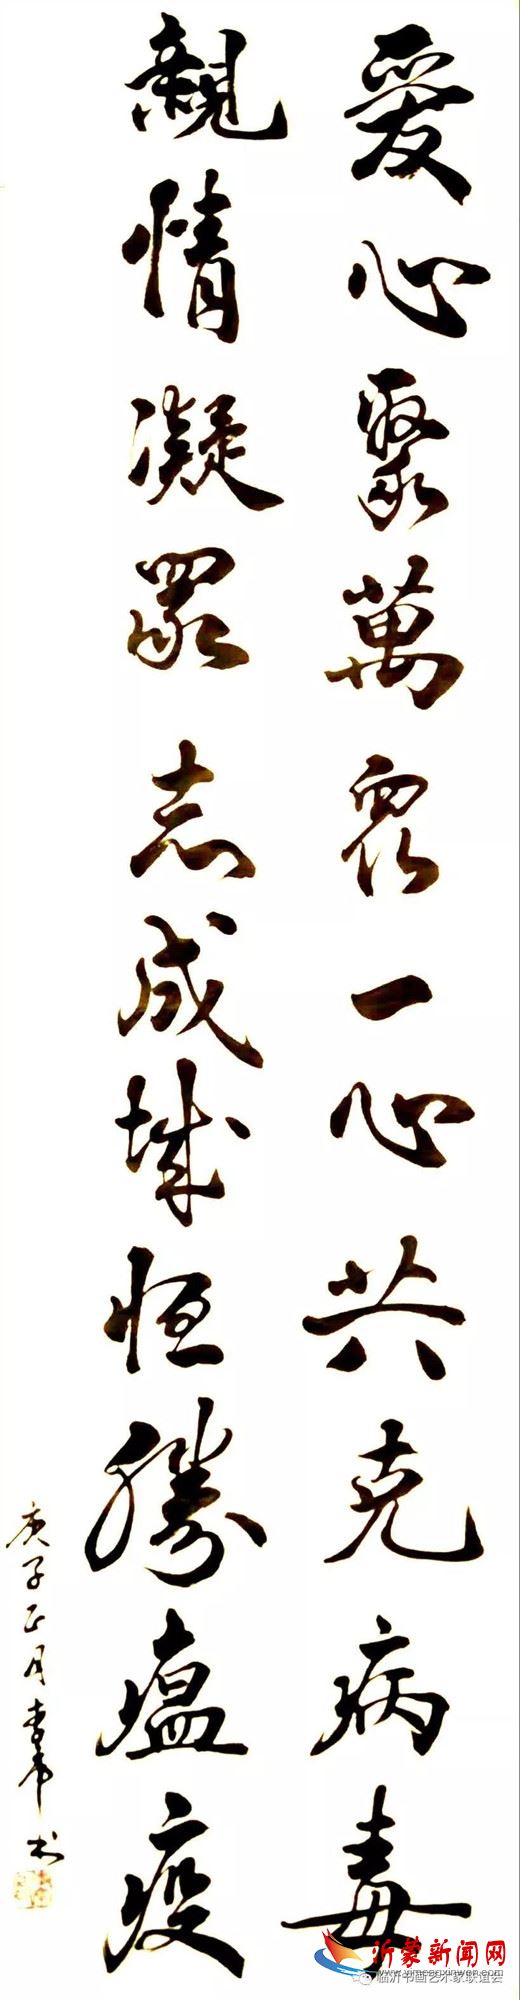 愛心聚萬眾一心共克病毒
親情凝眾志成城恒勝瘟疫
庚子正月
沂蒙新闻网
www.yimengxinwen.com
临沂书画艺术家联谊会